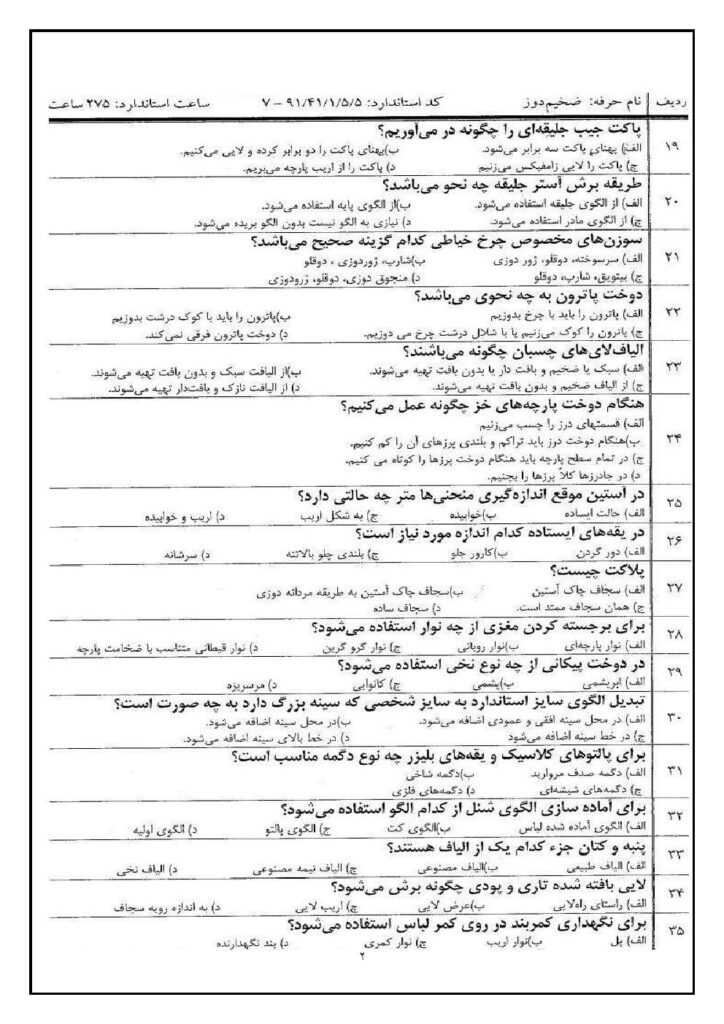 ردیف نام حرفه: ضخیم‌دوز کد استاندارد: ۹۱/۴۱/۱/۵/۵ – ۷ ساعت استاندارد: ۲۷۵ ساعت
۱۹ پاکت جیب جلیقه‌ای را چگونه در می‌آوریم؟
الف) پهنای پاکت سه برابر می‌شود. ب)پهنای پاکت را دو برابر کرده و لایی می‌کنیم.
ج) پاکت را لایی زامفیکس می‌زنیم د) پاکت را از اریب پارچه می‌بریم.
۲۰ طریقه برش آستر جلیقه چه نحو می‌باشد؟
الف) از الگوی جلیقه استفاده می‌شود. ب)از الگوی پایه استفاده می‌شود.
ج) از الگوی مادر استفاده می‌شود. د) نیازی به الگو نیست بدون الگو بریده می‌شود.
۲۱ سوزن‌های مخصوص چرخ خیاطی کدام گزینه صحیح می‌باشد؟
الف) سرسوخته، دوقلو، ژور دوزی ب)شارپ، ژوردوزی ، دوقلو
ج) بیتویق، شارپ، دوقلو د) منجوق دوزی، دوقلو، ژرودوزی
۲۲ دوخت پاترون به چه نحوی می‌باشد؟
الف) پاترون را باید با چرخ بدوزیم ب)پاترون را باید با کوک درشت بدوزیم
ج) پاترون را کوک می‌زنیم یا با شلال درشت چرخ می دوزیم. د) دوخت پاترون فرقی نمی‌کند.
۲۳ الیاف‌لای‌های چسبان چگونه می‌باشند؟
الف) سبک یا ضخیم و بافت دار یا بدون بافت تهیه می‌شوند. ب)از الیافت سبک و بدون بافت تهیه می‌شوند.
ج) از الیاف ضخیم و بدون بافت تهیه می‌شوند. د) از الیافت نازک و بافت‌دار تهیه می‌شوند.
۲۴ هنگام دوخت پارچه‌های خز چگونه عمل می‌کنیم؟
الف) قسمتهای درز را چسب می‌زنیم
ب)هنگام دوخت درز باید تراکم و بلندی پرزهای آن را کم کنیم.
ج) در تمام سطح پارچه باید هنگام دوخت پرزها را کوتاه می کنیم.
د) در جادرزها کلاً پرزها را بچنیم.
۲۵ در آستین موقع اندازه‌گیری منحنی‌ها متر چه حالتی دارد؟
الف) حالت ایساده ب)خوابیده ج) به شکل اریب د) اریب و خوابیده
۲۶ در یقه‌های ایستاده کدام اندازه مورد نیاز است؟
الف) دور گردن ب)کارور جلو ج) بلندی جلو بالاتنه د) سرشانه
۲۷ پلاکت چیست؟
الف) سجاف چاک آستین ب)سجاف چاک آستین به طریقه مردانه دوزی
ج) همان سجاف ممتد است. د) سجاف ساده
۲۸ برای برجسته کردن مغزی از چه نوار استفاده می‌شود؟
الف) نوار پارچه‌ای ب)نوار روبانی ج) نوار گرو گرین د) نوار قیطانی متناسب با ضخامت پارچه
۲۹ در دوخت پیکانی از چه نوع نخی استفاده می‌شود؟
الف) ابریشمی ب)پشمی ج) کانوایی د) مرسریزه
۳۰ تبدیل الگوی سایز استاندارد به سایز شخصی که سینه بزرگ دارد به چه صورت است؟
الف) در محل سینه افقی و عمودی اضافه می‌شود. ب)در محل سینه اضافه می‌شود.
ج) در خط سینه اضافه می‌شود د) در خط بالای سینه اضافه می‌شود.
۳۱ برای پالتوهای کلاسیک و یقه‌های بلیزر چه نوع دگمه مناسب است؟
الف) دگمه صدف مروارید ب)دگمه شاخی
ج) دگمه‌های شیشه‌ای د) دگمه‌های فلزی
۳۲ برای آماده سازی الگوی شنل از کدام الگو استفاده می‌شود؟
الف) الگوی آماده شده لباس ب)الگوی کت ج) الگوی پالتو د) الگوی اولیه
۳۳ پنبه و کتان جزء کدام یک از الیاف هستند؟
الف) الیاف طبیعی ب)الیاف مصنوعی ج) الیاف نیمه مصنوعی د) الیاف نخی
۳۴ لایی بافته شده تاری و پودی چگونه برش می‌شود؟
الف) راستای راه‌لایی ب)عرض لایی ج) اریب لایی د) به اندازه رویه سجاف
۳۵ برای نگهداری کمربند در روی کمر لباس استفاده می‌شود؟
الف) پل ب)نوار اریب ج) نوار کمری د) بند نگهدارنده
۲